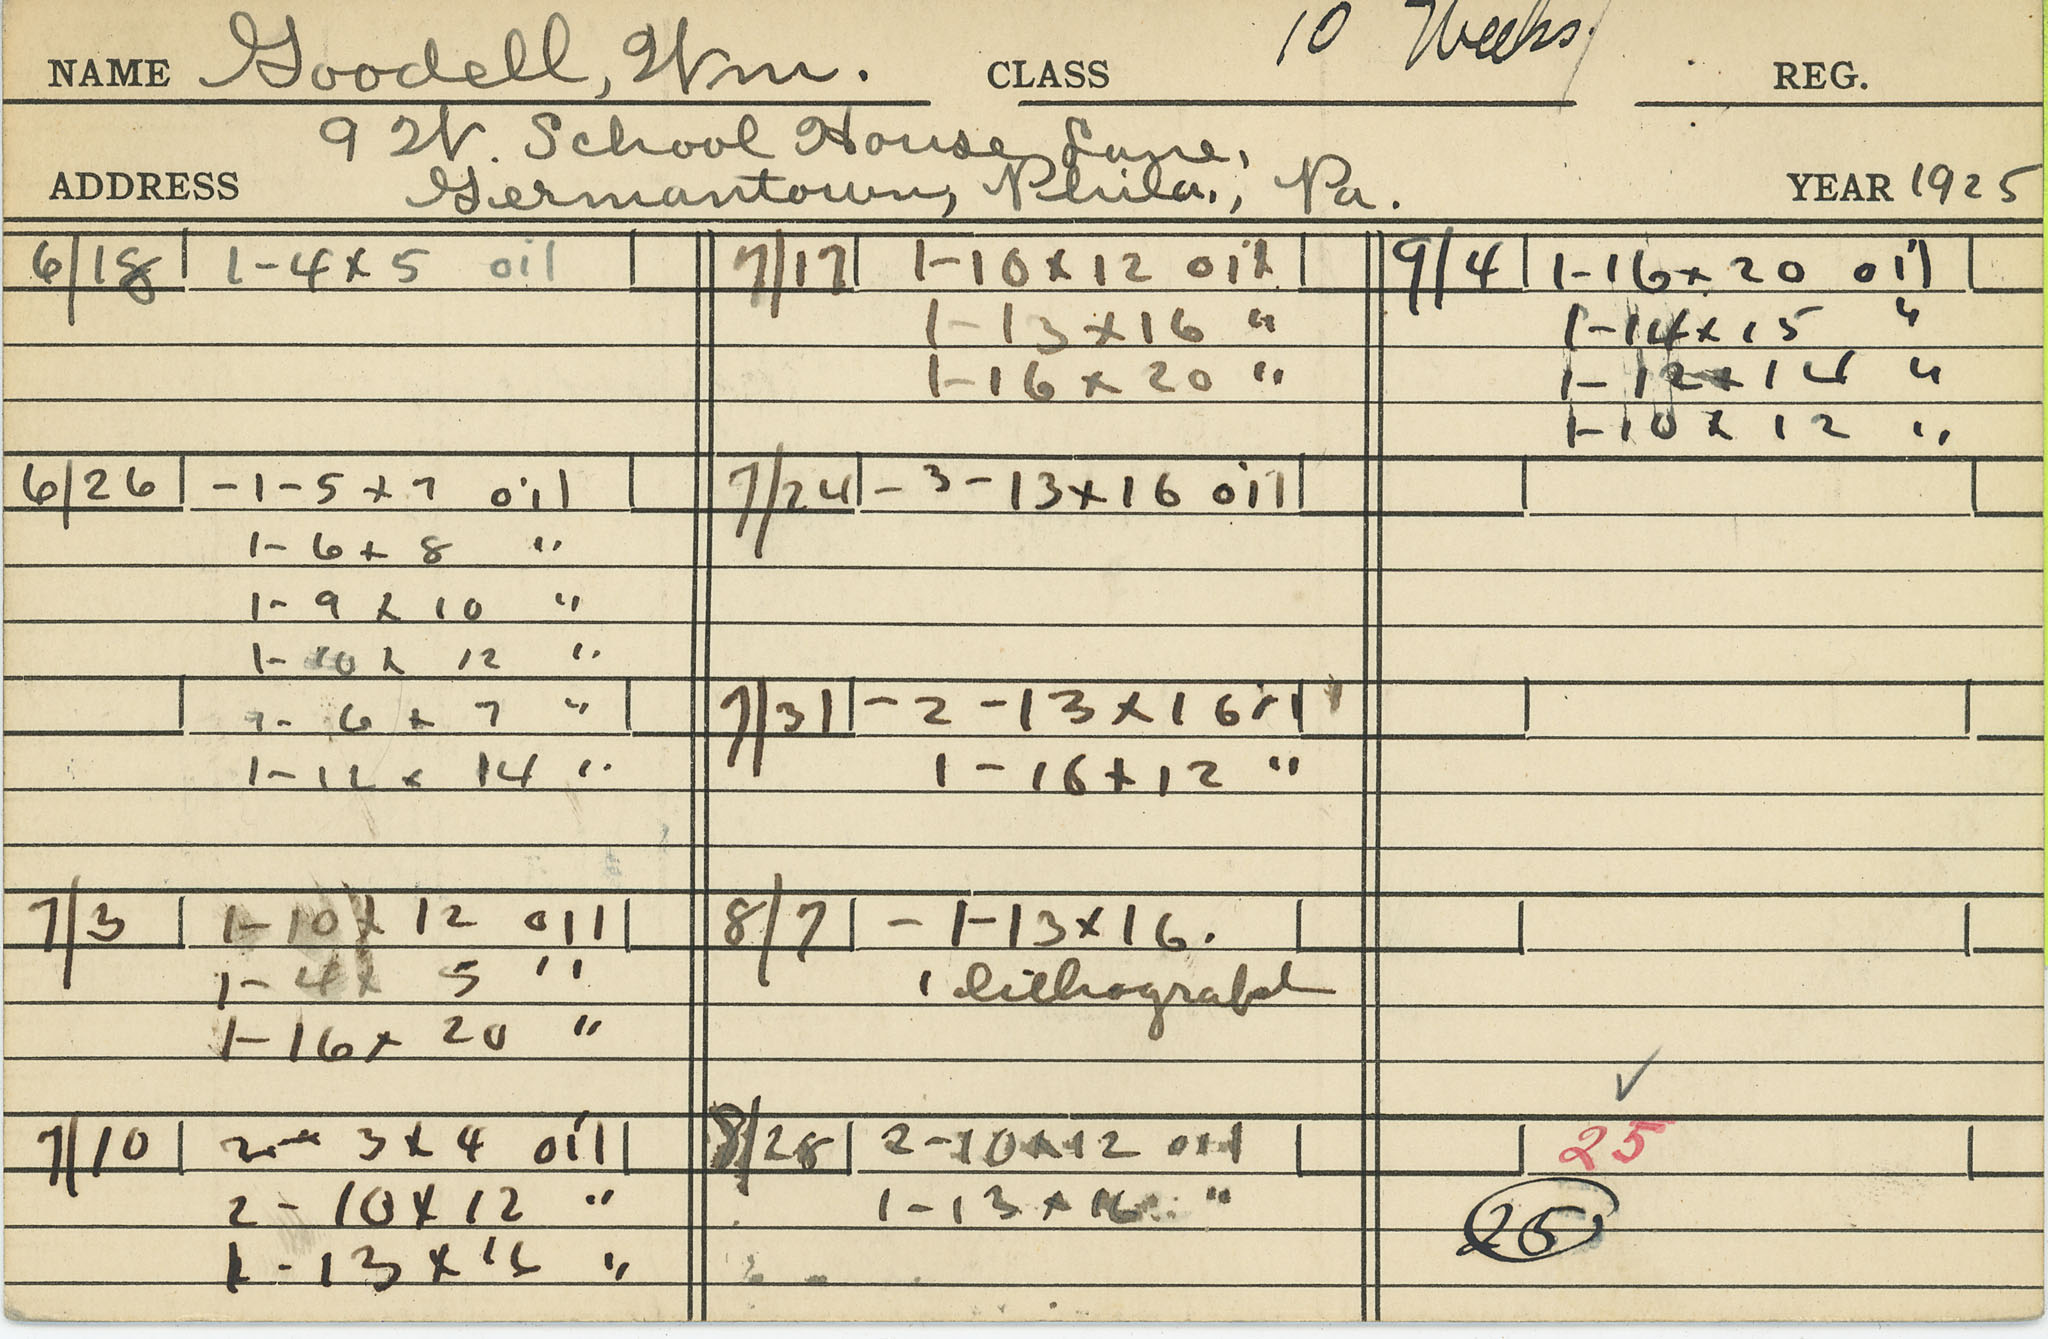 NAME Goodell, Wm. CLASS 10 Weeks REG.
ADDRESS 9 W. School House Lane,
Germantown, Phila., Pa. YEAR 1925
6/18 1-4x5 oil
6/26 -1-5x7 oil
1-6x8 "
1-9x10 "
1-10x12 "
1-6x7 "
1-12x14 "
7/3 1-10x12 oil
1-4x5 "
1-16x20 "
7/10 2-3x4 oil
2-10x12 "
1-13x16 "
7/17 1-10x12 oil
1-13x16 "
1-16x20 "
7/24 -3-13x16 oil
7/31 -2-13x16 oil
1-16x12 "
8/7 -1-13x16.
1 lithograph
8/28 2-10x12 oil
1-13x16 "
9/4 1-16x20 oil
1-14x15 "
1-12x14 "
1-10x12 "
25